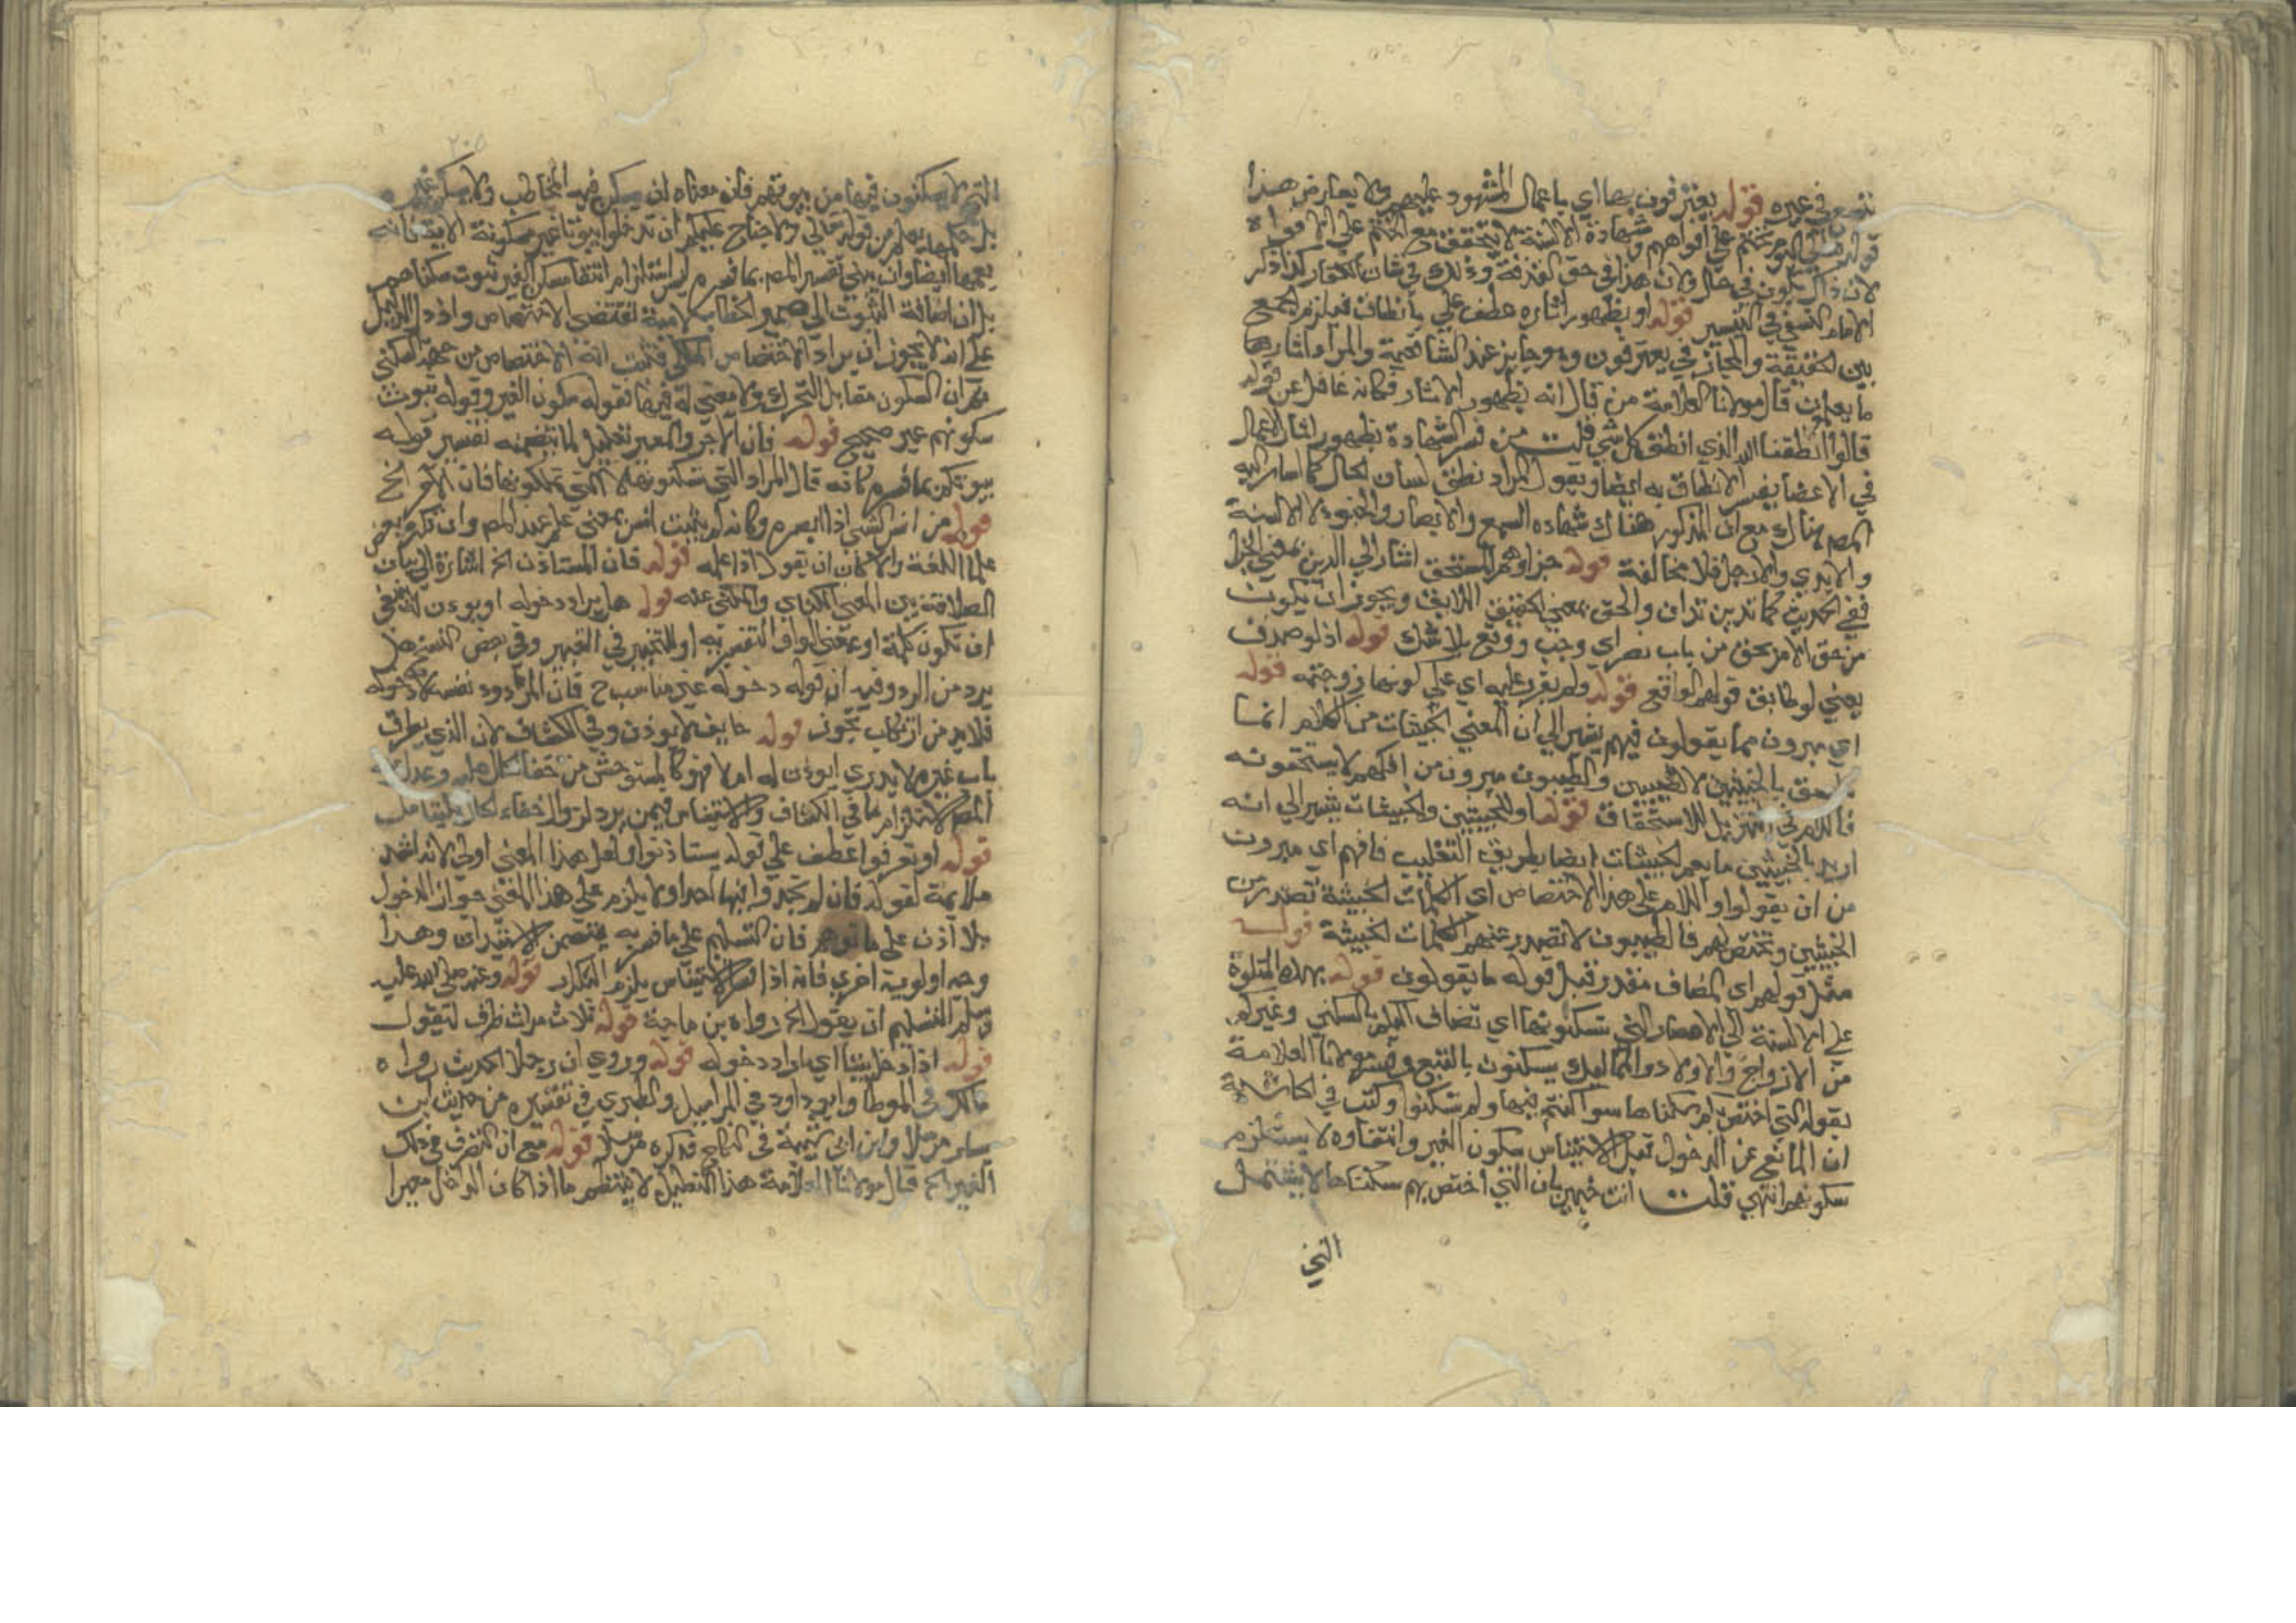 في غيره قوله يعترفون بها اي باعمال المشهود عليهم ولا يعارض هذا
قوله تعالى اليوم نختم على افواههم و شهادة الالسنة لا يتحقق مع الختم على الافواه
لان ذاك يكون في حال وان هذا في حق القذفة وذلك في شان الكفار كذا ذكر
الامام النسفي في التيسير قوله او بظهور اثاره عطف على بانطاق فيلزم الجمع
بين الحقيقة والمجاز في يعترفون وهو جايز عند الشافعية والمراد اثار
ما يعملون قال مولانا العلامة من قال انه بظهور الاثار فكانه غافل عن قوله
قالوا انطقنا الله الذي انطق كل شي قلت من فسر الشهادة بظهور اثار الاعمال
في الاعضا يفسر الانطاق به ايضا ويقول المراد نطق لسان الحال كما اشار اليه
المص هناك مع ان المذكور هناك شهاده السمع والابصار والجلود لا الالسنة
والايدي والارجل فلا مخالفة قوله جزاوهم المستحق اشار الي الدين بمعني الجزا
ففي الحديث كما تدين تدان والحق بمعني الحقيق اللايق ويجوز ان يكون
من حق الامر يحق من باب نصر اي وجب ووقع بلا شك قوله اذ لو صدق
يعني لو طابق قولهم الواقع قوله ولم يقرر عليه اي علي كونها زوجته قوله
اي مبرون مما يقولون فيهم يشير الي ان المعني الخبيثات من الكلام انما
يلحق بالخبيثين لا الطيبين والطيبون مبرون من افكهم لا يستحقونه
فاللام في التنزيل للاستحقاق قوله او للخبيثين والخبيثات يشير الي انه
اريد بالخبيثين ما يعم الخبيثات ايضا بطريق التغليب فافهم اي مبرون
من ان يقولوا واللام علي هذا الاختصاص اي الكلمات الخبيثة تصدر من
الخبيثين وتختص بهم فالطيبون لا تصدر عنهم الكلمات الخبيثة قوله
مثل قولهم اي المضاف مقدر قبل قوله ما يقولون قوله بهذه المتلوة
علي الالسنة الي الاعصار التي تسكنونها اي تضاف اليكم بالسكني وغيركم
من الازواج والاولاد والمماليك يسكنون بالتبع وفسر مولانا العلامة
بقوله التي اختص بكم سكناها سوا كنتم فيها ولم تسكنوا وكتب في الحاشية
ان المانع عن الدخول قبل الاستيناس سكون الغير وانتفاوه لا يستلزم
سكونهم انتهي قلت انت خبير بان التي اختص بهم سكناها لا يشتمل
التي
٢٠٥
التي لا يسكنون فيها من بيوتهم فان معناه ان يسكن فيه المخاطب ولا يسكن غيره
بل من قوله تعالي ولا جناح عليكم ان تدخلوا بيوتا غير مسكونة الاية فانه
يعمها ايضا وان مبني تفسير المص بما فسره ليس استلزام انتفا سكن الغير ثبوت سكناهم
بل ان اضافة البيوت الي ضمير الخطاب لامية تقتضي الاختصاص واذ دل الدليل
علي انه لا يجوز ان يراد الاختصاص الملكي فثبت انه الاختصاص من جهة السكني
ثم ان السكون مقابل التحرك ولا معني له فيها فقوله سكون الغير وقوله ثبوت
سكونهم غير صحيح قوله فان الاجر والمعير تعليل لما تضمنه تفسير قوله
بيوتكم بما فسره كانه قال المراد التي تسكنونها لا التي تملكونها فان الاجر الخ
قوله من انس الشي اذا ابصره وكانه لم يثبت انس بمعني علم عند المص وان ذكره بعض
علما اللغة والا كان ان يقول اذا علمه قوله فان المستاذن الخ اشارة الي بيان
العلاقة بين المعني الكنائي والمكني عنه قوله هل يراد دخوله او يوذن له
ان تكون كلمة او بمعني الواو التفسيرية او للتخيير في التعبير وفي بعض النسخ هل
يرد من الرد وفيه ان قوله دخوله غير مناسب ح فان المردود نفسه لا دخوله
فلا بد من ارتكاب تجوز قوله خايف لا يوذن وفي الكشاف لان الذي يطرق
باب غيره لا يدري ايوذن له ام لا فهو كالمستوحش من خفا الحال عليه وعدل
المص لاستلزام ما في الكشاف والاستيناس فيمن يرد لزوال خفاء الحال فليتامل
قوله او تعرفوا عطف علي قوله يستاذنوا ولعل هذا المعني اولي لانه اشد
ملايمة لقوله فان لم تجدوا فيها احدا ولا يلزم علي هذا المعني جواز الدخول
بلا اذن علي ما توهم فان التسليم علي ما فسر به يتضمن الاستيذان وهذا
وجه اولوية اخري فانه اذا فسر الاستيناس يلزم التكرار قوله وعنه صلي الله عليه
وسلم التسليم ان يقول الخ رواه بن ماجة قوله ثلاث مرات ظرف ليقول
قوله اذا دخل بيتا اي اراد دخوله قوله وروي ان رجلا الحديث رواه
مالك في الموطا وابو داود في المراسيل والطبري في تفسيره من حديث ابن
يسار مرسلا وابن ابي شيبة في النكاح فذكره مرسلا قوله مع ان التصرف في ملك
الغير الخ قال مولانا العلامة هذا التعليل لا ينتظم ما اذا كان الداخل معيرا